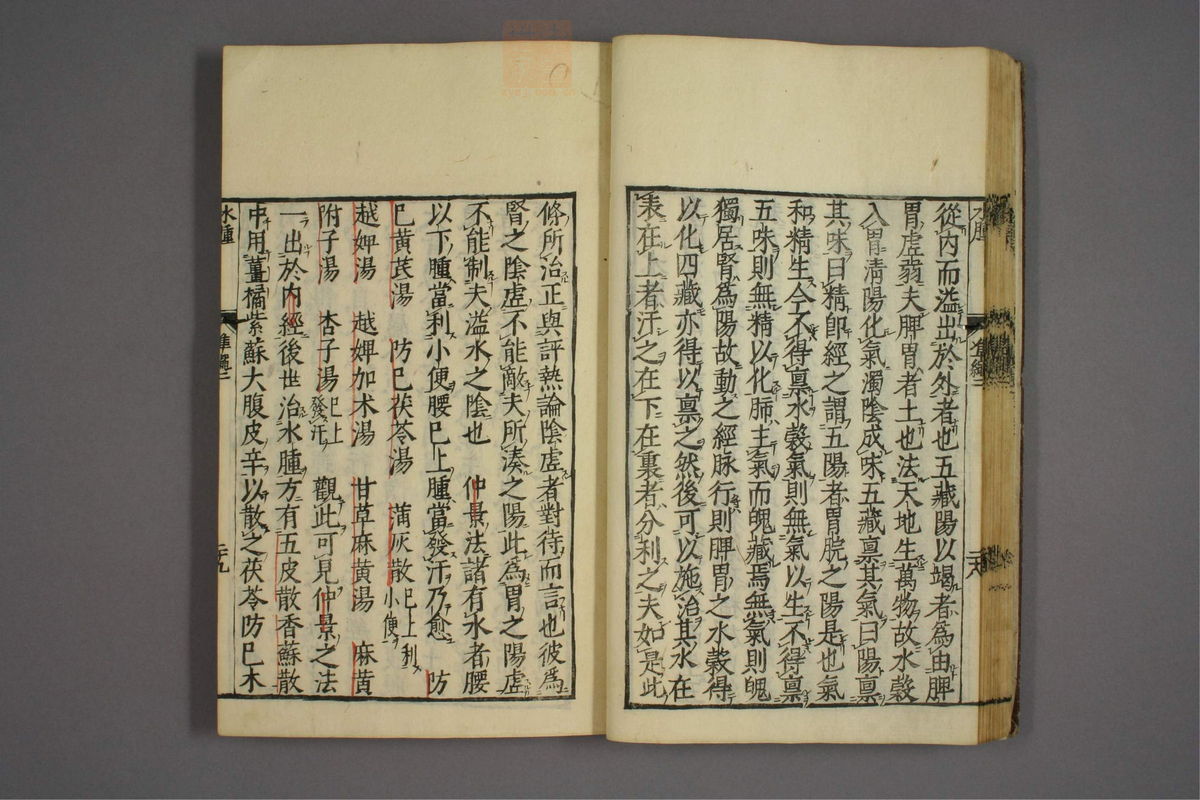 從內而溢出於外者也五藏陽以竭者為由脾
胃虛弱夫脾胃者土也法天地生萬物故水穀
入胃清陽化氣濁陰成味五藏稟其氣曰陽稟
其味曰精即經之謂五陽者胃脘之陽是也氣
和精生今不得稟水穀氣則無氣以生不得稟
五味則無精以化肺主氣而魄藏焉無氣則魄
獨居腎為陽故動之經脉行則脾胃之水穀得
以化四藏亦得以稟之然後可以施治其水在
表在上者汗之在下在裏者分利之夫如是此
水腫 準繩二
條所治正與評熱論陰虛者對待而言也彼為
腎之陰虛不能敵夫所湊之陽此為胃之陽虛
不能制夫溢水之陰也 仲景法諸有水者腰
以下腫當利小便腰已上腫當發汗乃愈 防
已黃芪湯 防已茯苓湯 蒲灰散已上利小便
越婢湯 越婢加朮湯 甘草麻黃湯 麻黃
附子湯 杏子湯已上發汗 觀此可見仲景之法
一出於內經後世治水腫方有五皮散香蘇散
中用薑橘紫蘇大腹皮辛以散之茯苓防已木
水腫 準繩二 二十九